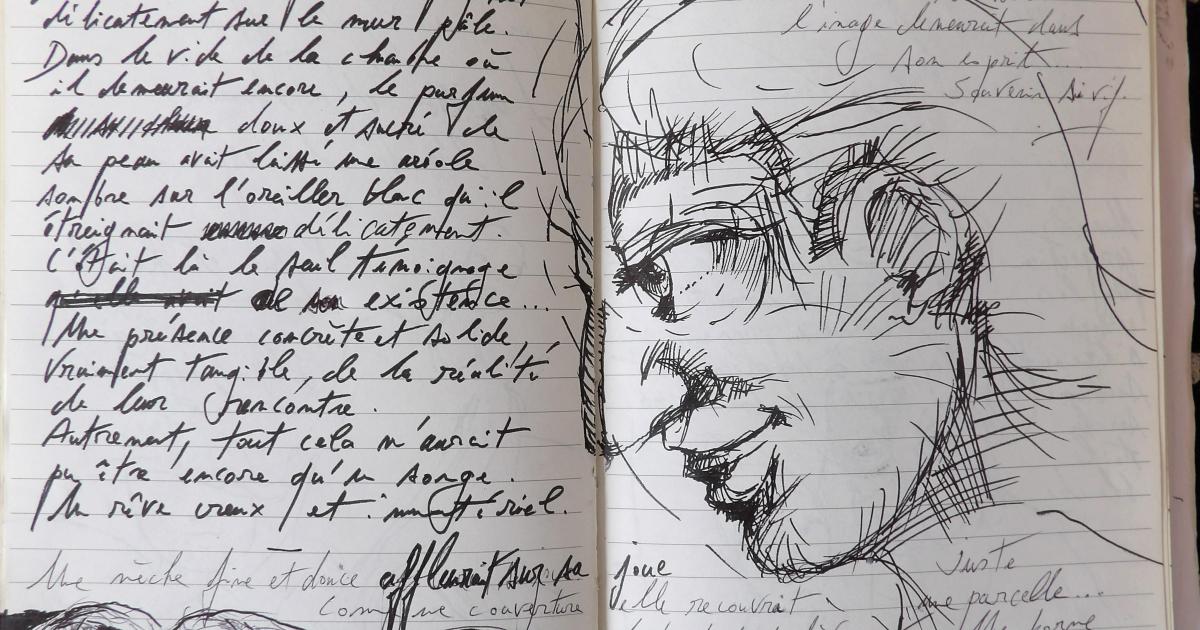 délicatement sur le mur pâle.
Dans le vide de la chambre où
il demeurait encore, le parfum
doux et sucré de
sa peau avait laissé une aréole
sombre sur l'oreiller blanc qu'il
étreignait délicatement.
C'était là le seul témoignage
qu'elle avait de son existence...
Une présence concrète et solide,
vraiment tangible, de la réalité
de leur rencontre.
Autrement, tout cela n'aurait
pu être encore qu'un songe.
Un rêve creux et immatériel.
Une mèche fine et douce affleurait sur sa
comme une couverture
l'image demeurait dans
son esprit...
Souvenir si vif.
joue
elle recouvrait
Juste
une parcelle...